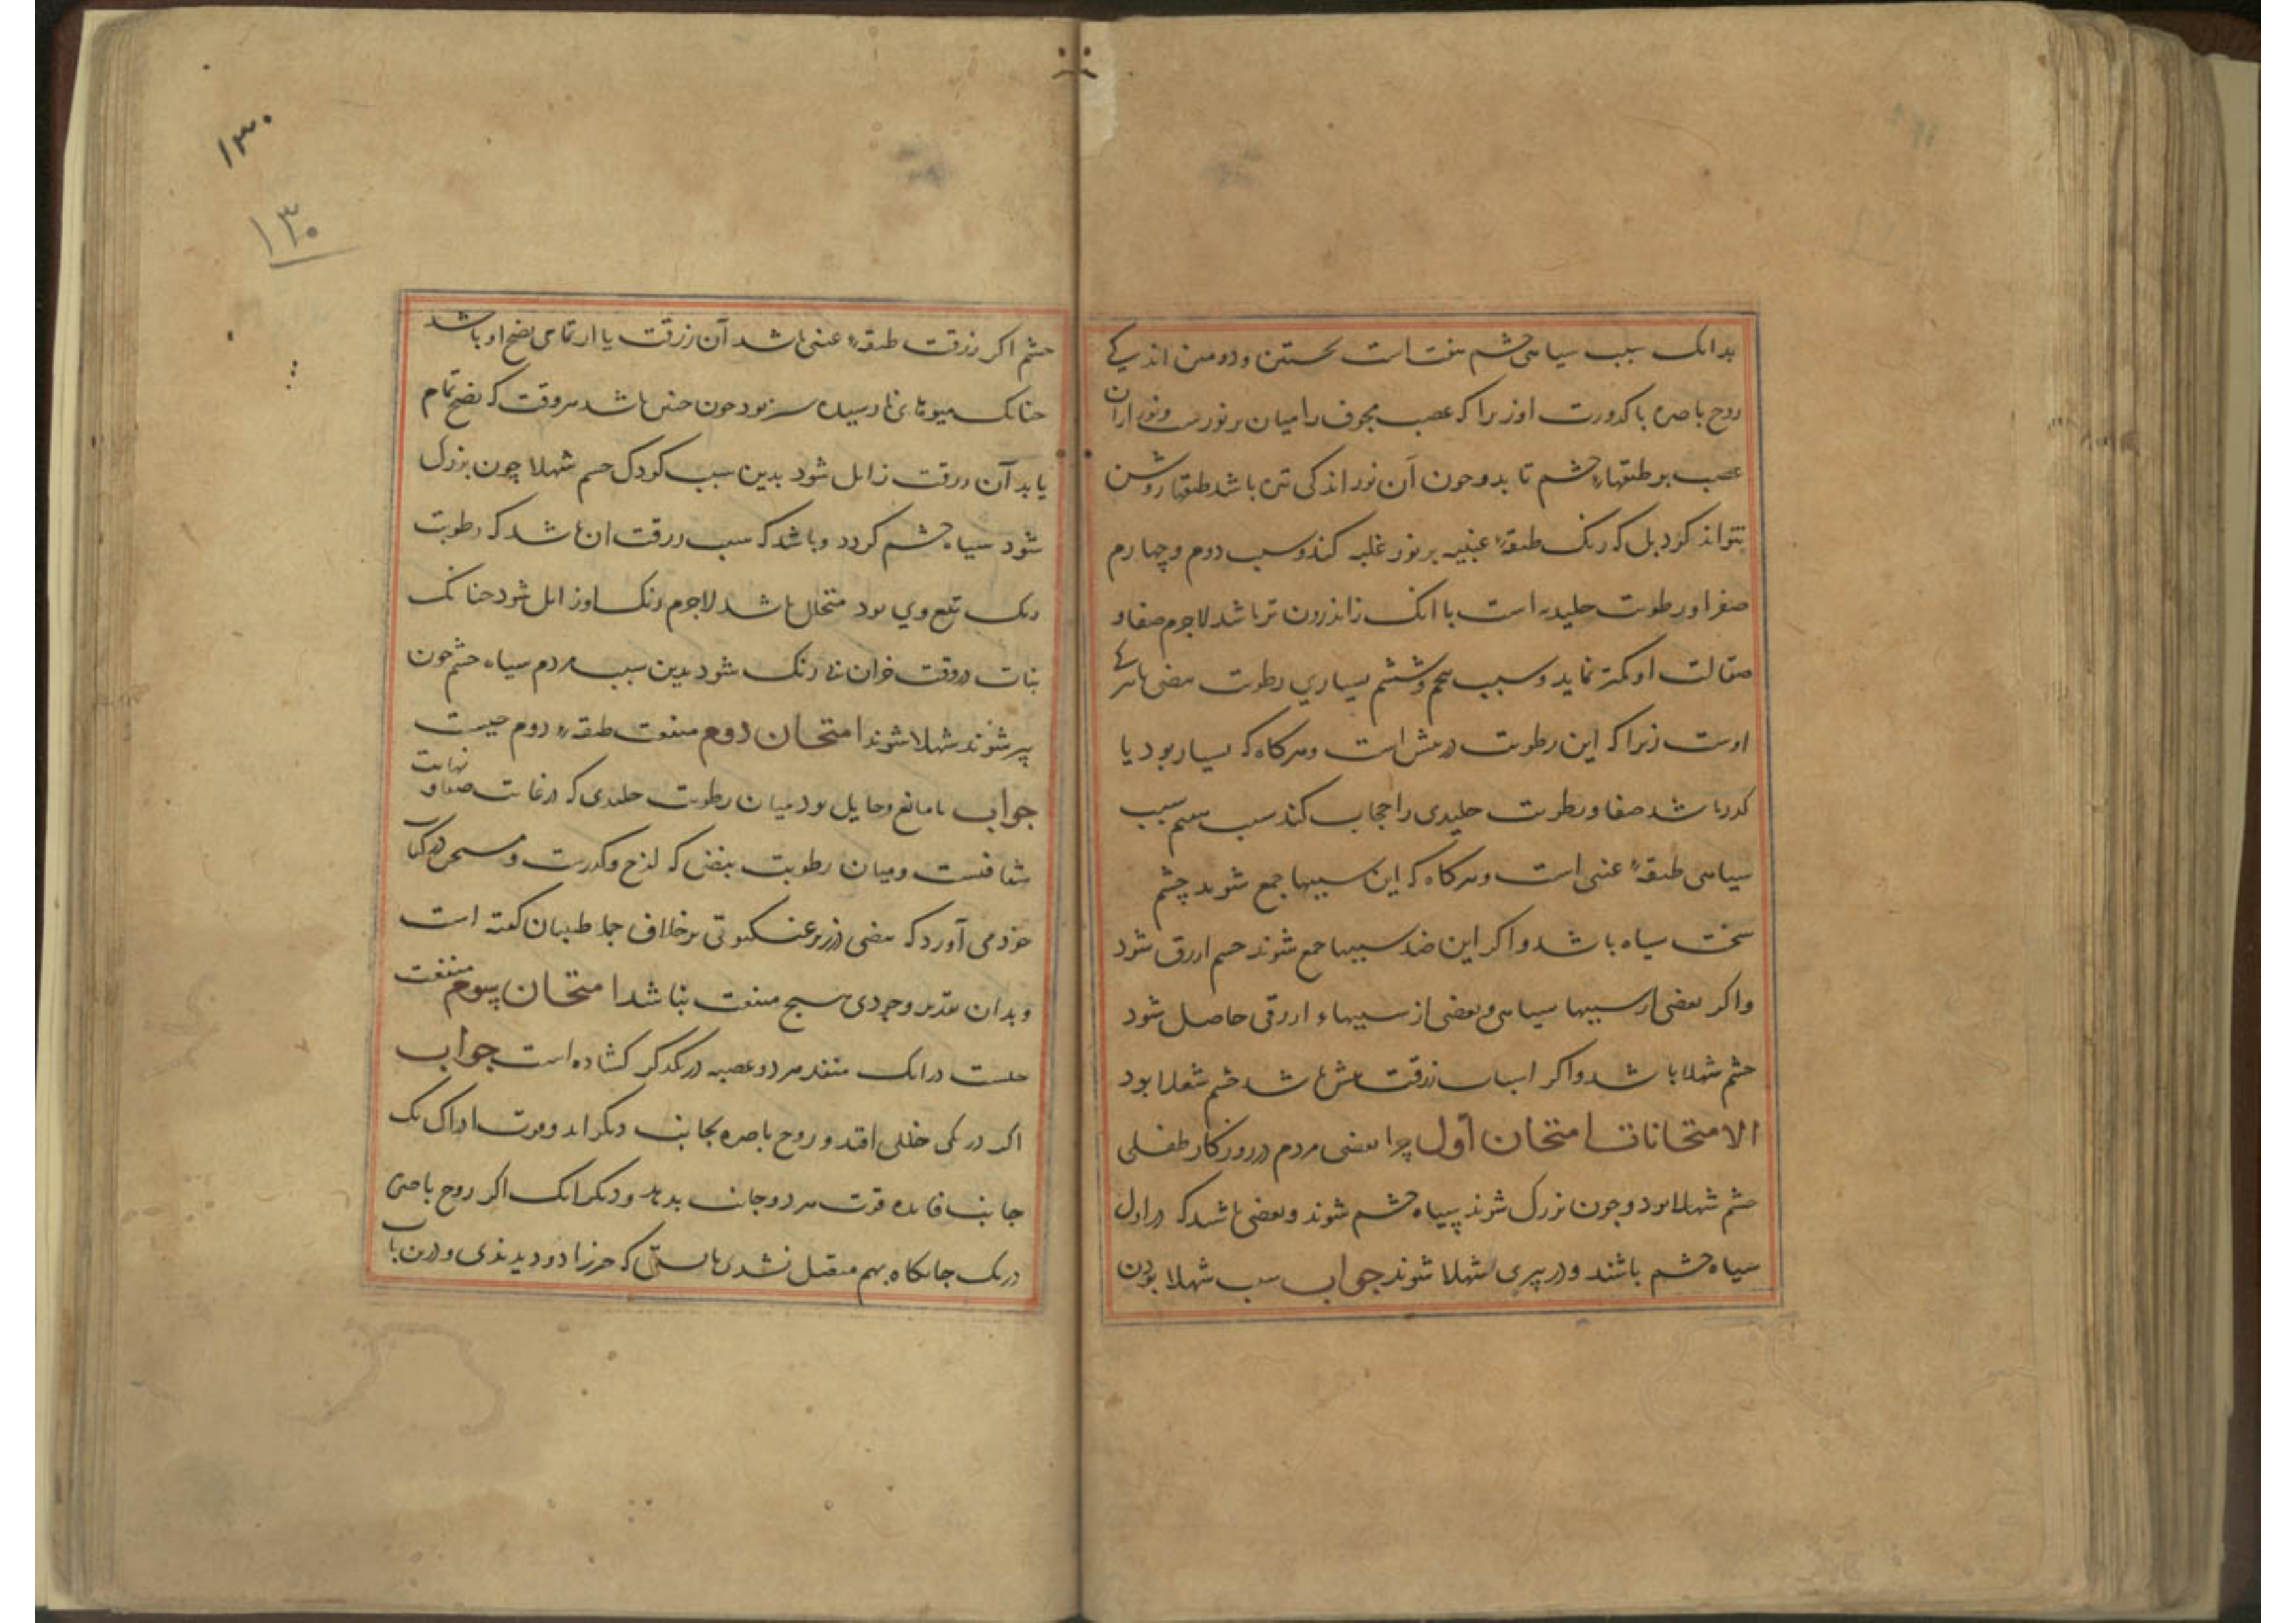 بدانک سبب سیاهی چشم هفت است نخستین و دومین اندکی
روح باصره با کدورت او زیرا که عصب مجوف را میان بر نورست و نور ازان
عصب بر طبقهاء چشم تابد و چون آن نور اندکی تیره باشد طبقها روشن
نتواند کرد بل که رنک طبقهٔ عنبیه بر نور غلبه کند و سبب دوم و چهارم
صغر او رطوبت جلیدیه است با انک زاندرون تر باشد لاجرم صفا و
صقالت او کمتر نماید و سبب پنجم و ششم بسیاری رطوبت بیضی با تیرکی
اوست زیرا که این رطوبت در پیش است و هرکاه که بسیار بود یا
کدر باشد صفا و رطوبت جلیدی را حجاب کند سبب هفتم سبب
سیاهی طبقهٔ عنبی است و هرکاه که این سببها جمع شوند چشم
سخت سیاه باشد و اکر این ضد سببها جمع شوند چشم ازرق شود
و اکر بعضی از سببها سیاهی و بعضی از سببهاء ازرقی حاصل شود
چشم شهلا باشد و اکر اسباب زرقت بیش باشد چشم شعلا بود
الامتحانات امتحان اول چرا بعضی مردم در روزکار طفلی
چشم شهلا بود و چون بزرک شوند سیاه چشم شوند و بعضی باشد که در اول
سیاه چشم باشند و در پیری شهلا شوند جواب سبب شهلا بودن
۱۳۰
۱۳۰
چشم اکر زرقت طبقهٔ عنبی باشد آن زرقت یا از تمامی نضج او باشد
چنانک میوهای نارسیده سبز بود چون چنین باشد هر وقت که نضج تمام
یابد آن زرقت زایل شود بدین سبب کودک چشم شهلا چون بزرک
شود سیاه چشم کردد و باشد که سبب زرقت ان باشد که رطوبت
رنک تبع وی بود متحلل باشد لاجرم رنک او زایل شود چنانک
نبات در وقت خزان رنک شود بدین سبب مردم سیاه چشم چون
پیر شوند شهلا شوند امتحان دوم منفعت طبقهٔ دوم چیست
جواب تا مانع و حایل بود میان رطوبت جلیدی که در غایت صفا و نهایت
شفافیست و میان رطوبت بیضی که لزج و کدرست و مسیحی در کتاب
خود می آورد که بیضی در زیر عنکبوتی بر خلاف جمله طبیبان کفته است
و بدان تقدیر وجودی هیچ منفعت نباشد امتحان سوم منفعت
چیست در انک منفذ هر دو عصبه در یکدکر کشاده است جواب
اکر در یکی خللی افتد و روح باصره بجانب دیکر اید و قوت ادراک یک
جانب فایده قوت هر دو جانب بدهد و دیکر انک اکر روح باصره
در یک جایکاه بهم متصل نشدی بایستی که هر چیز را دو دیدندی و درین باب